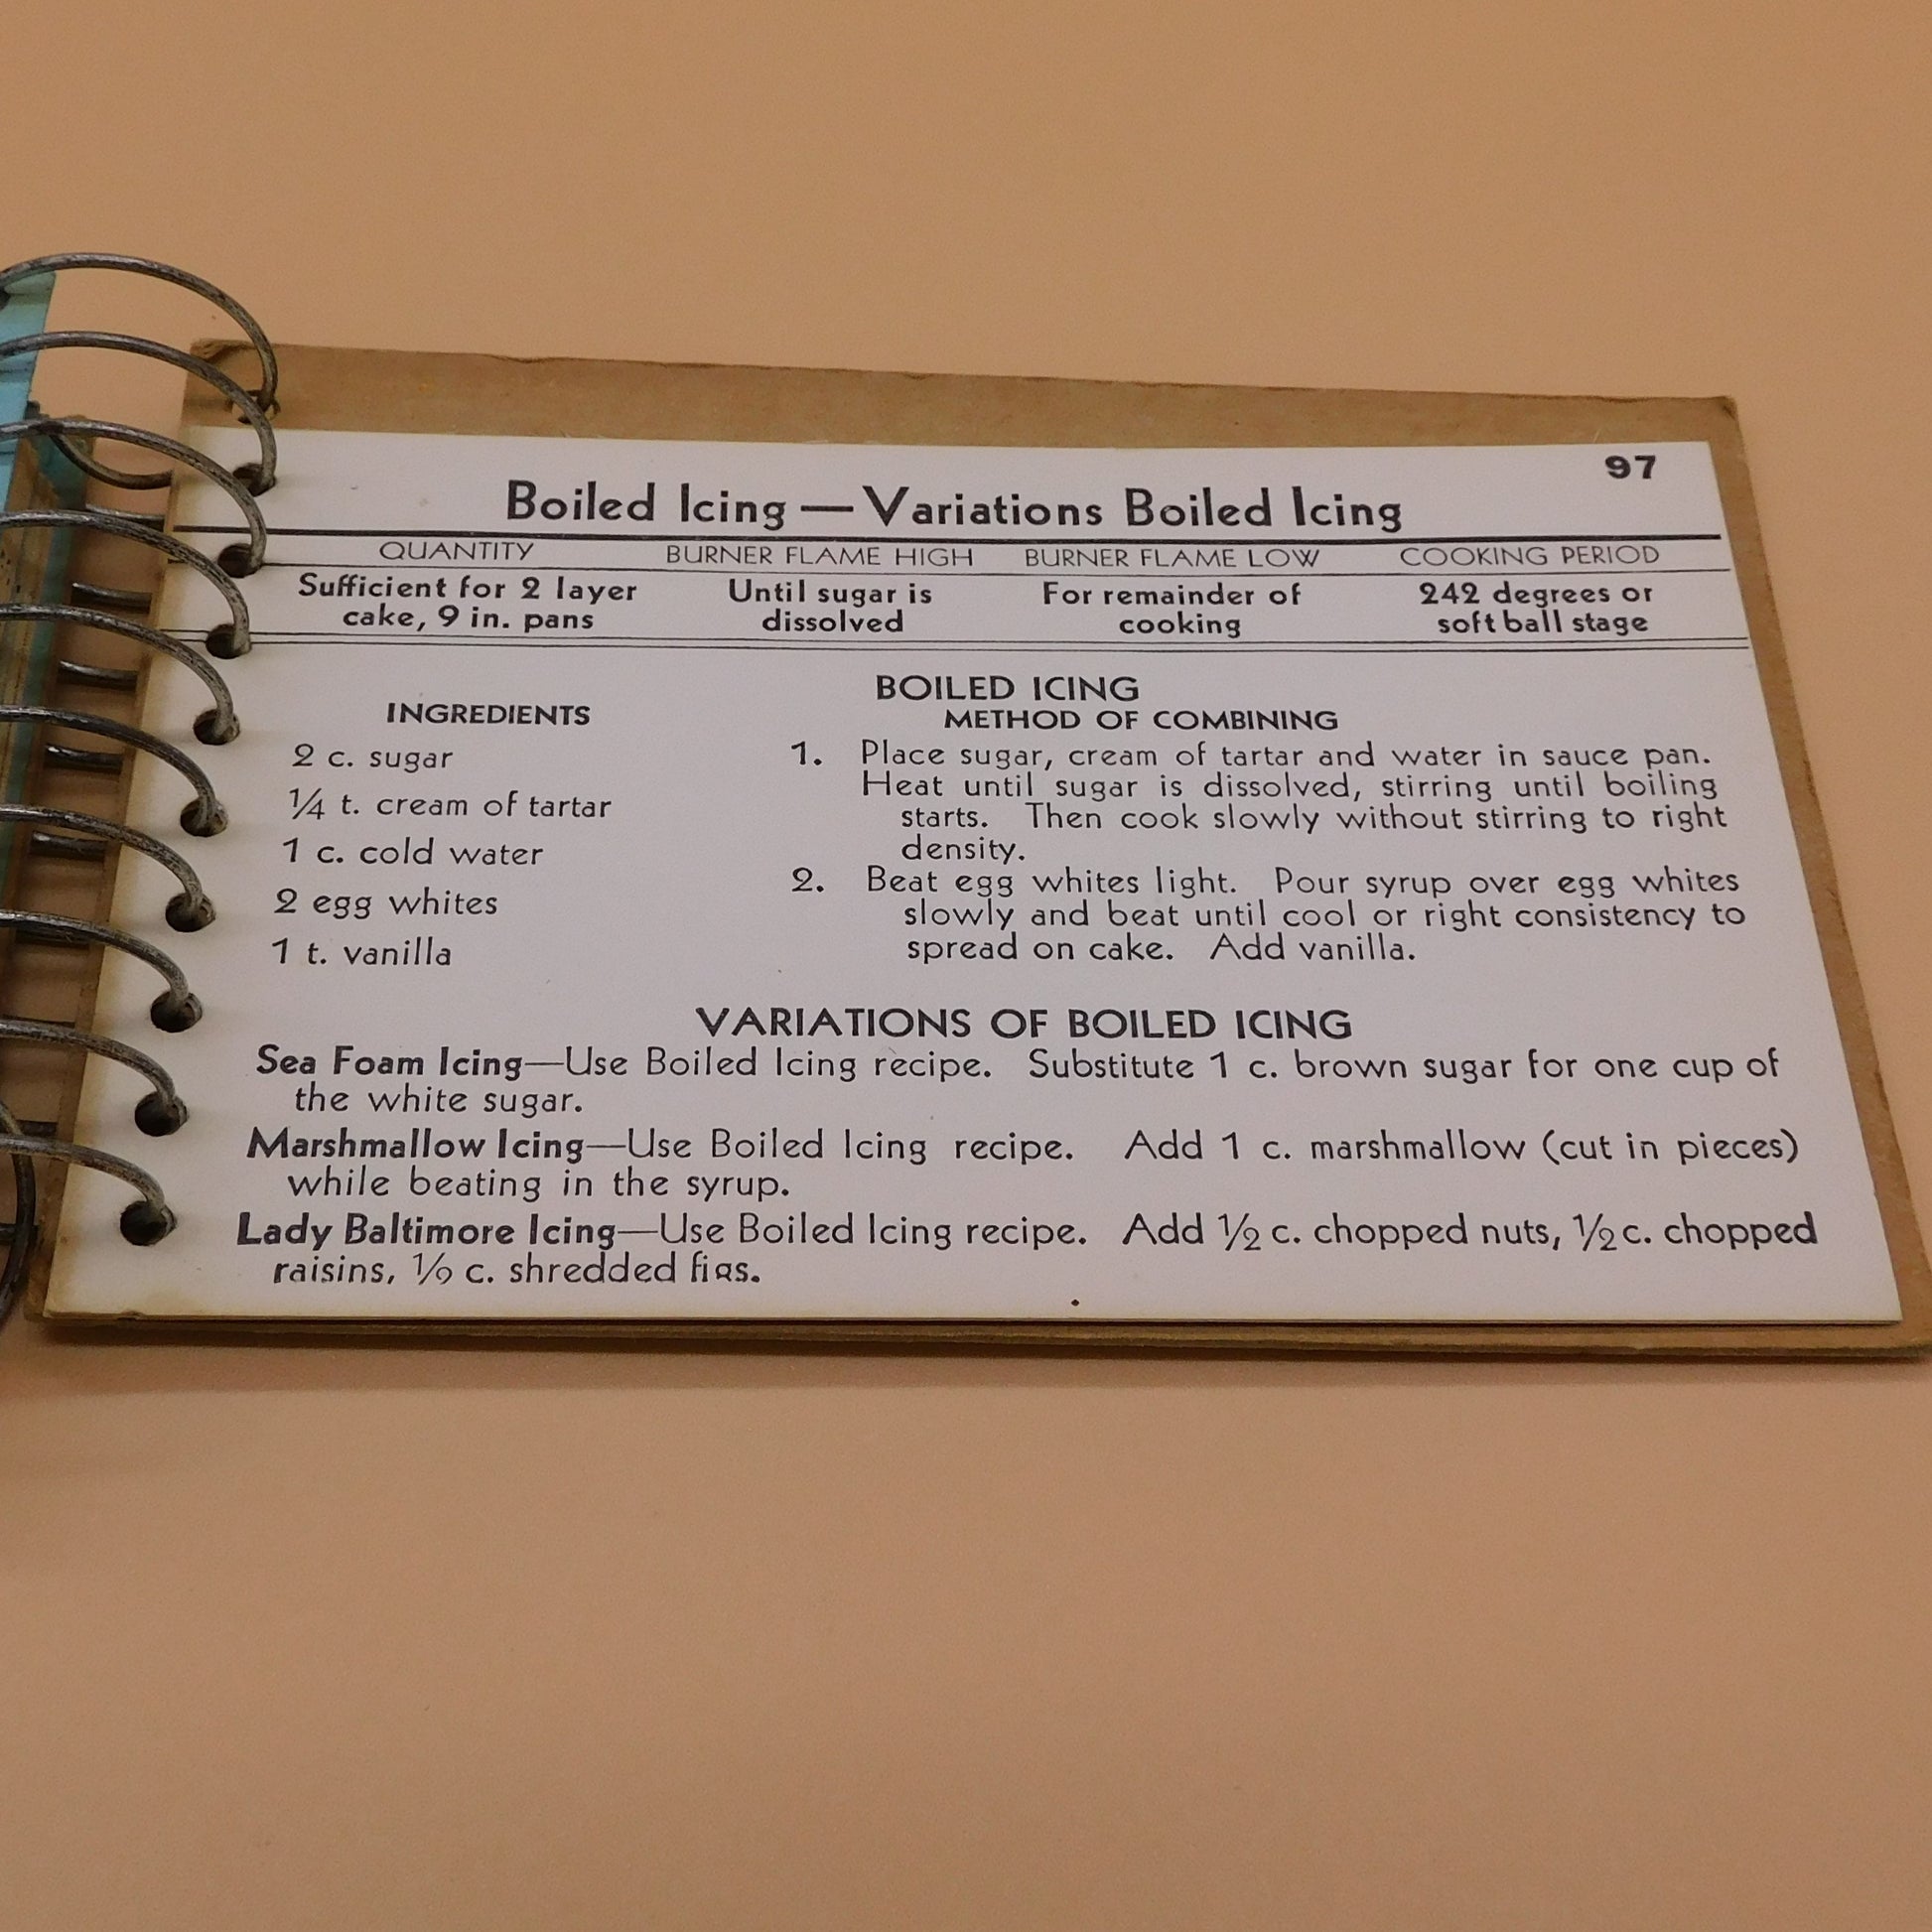 97
Boiled Icing — Variations Boiled Icing
QUANTITY BURNER FLAME HIGH BURNER FLAME LOW COOKING PERIOD
Sufficient for 2 layer Until sugar is For remainder of 242 degrees or
cake, 9 in. pans dissolved cooking soft ball stage
BOILED ICING
INGREDIENTS METHOD OF COMBINING
2 c. sugar
1/4 t. cream of tartar
1 c. cold water
2 egg whites
1 t. vanilla
1. Place sugar, cream of tartar and water in sauce pan.
Heat until sugar is dissolved, stirring until boiling
starts. Then cook slowly without stirring to right
density.
2. Beat egg whites light. Pour syrup over egg whites
slowly and beat until cool or right consistency to
spread on cake. Add vanilla.
VARIATIONS OF BOILED ICING
Sea Foam Icing—Use Boiled Icing recipe. Substitute 1 c. brown sugar for one cup of
the white sugar.
Marshmallow Icing—Use Boiled Icing recipe. Add 1 c. marshmallow (cut in pieces)
while beating in the syrup.
Lady Baltimore Icing—Use Boiled Icing recipe. Add 1/2 c. chopped nuts, 1/2 c. chopped
raisins, 1/2 c. shredded figs.